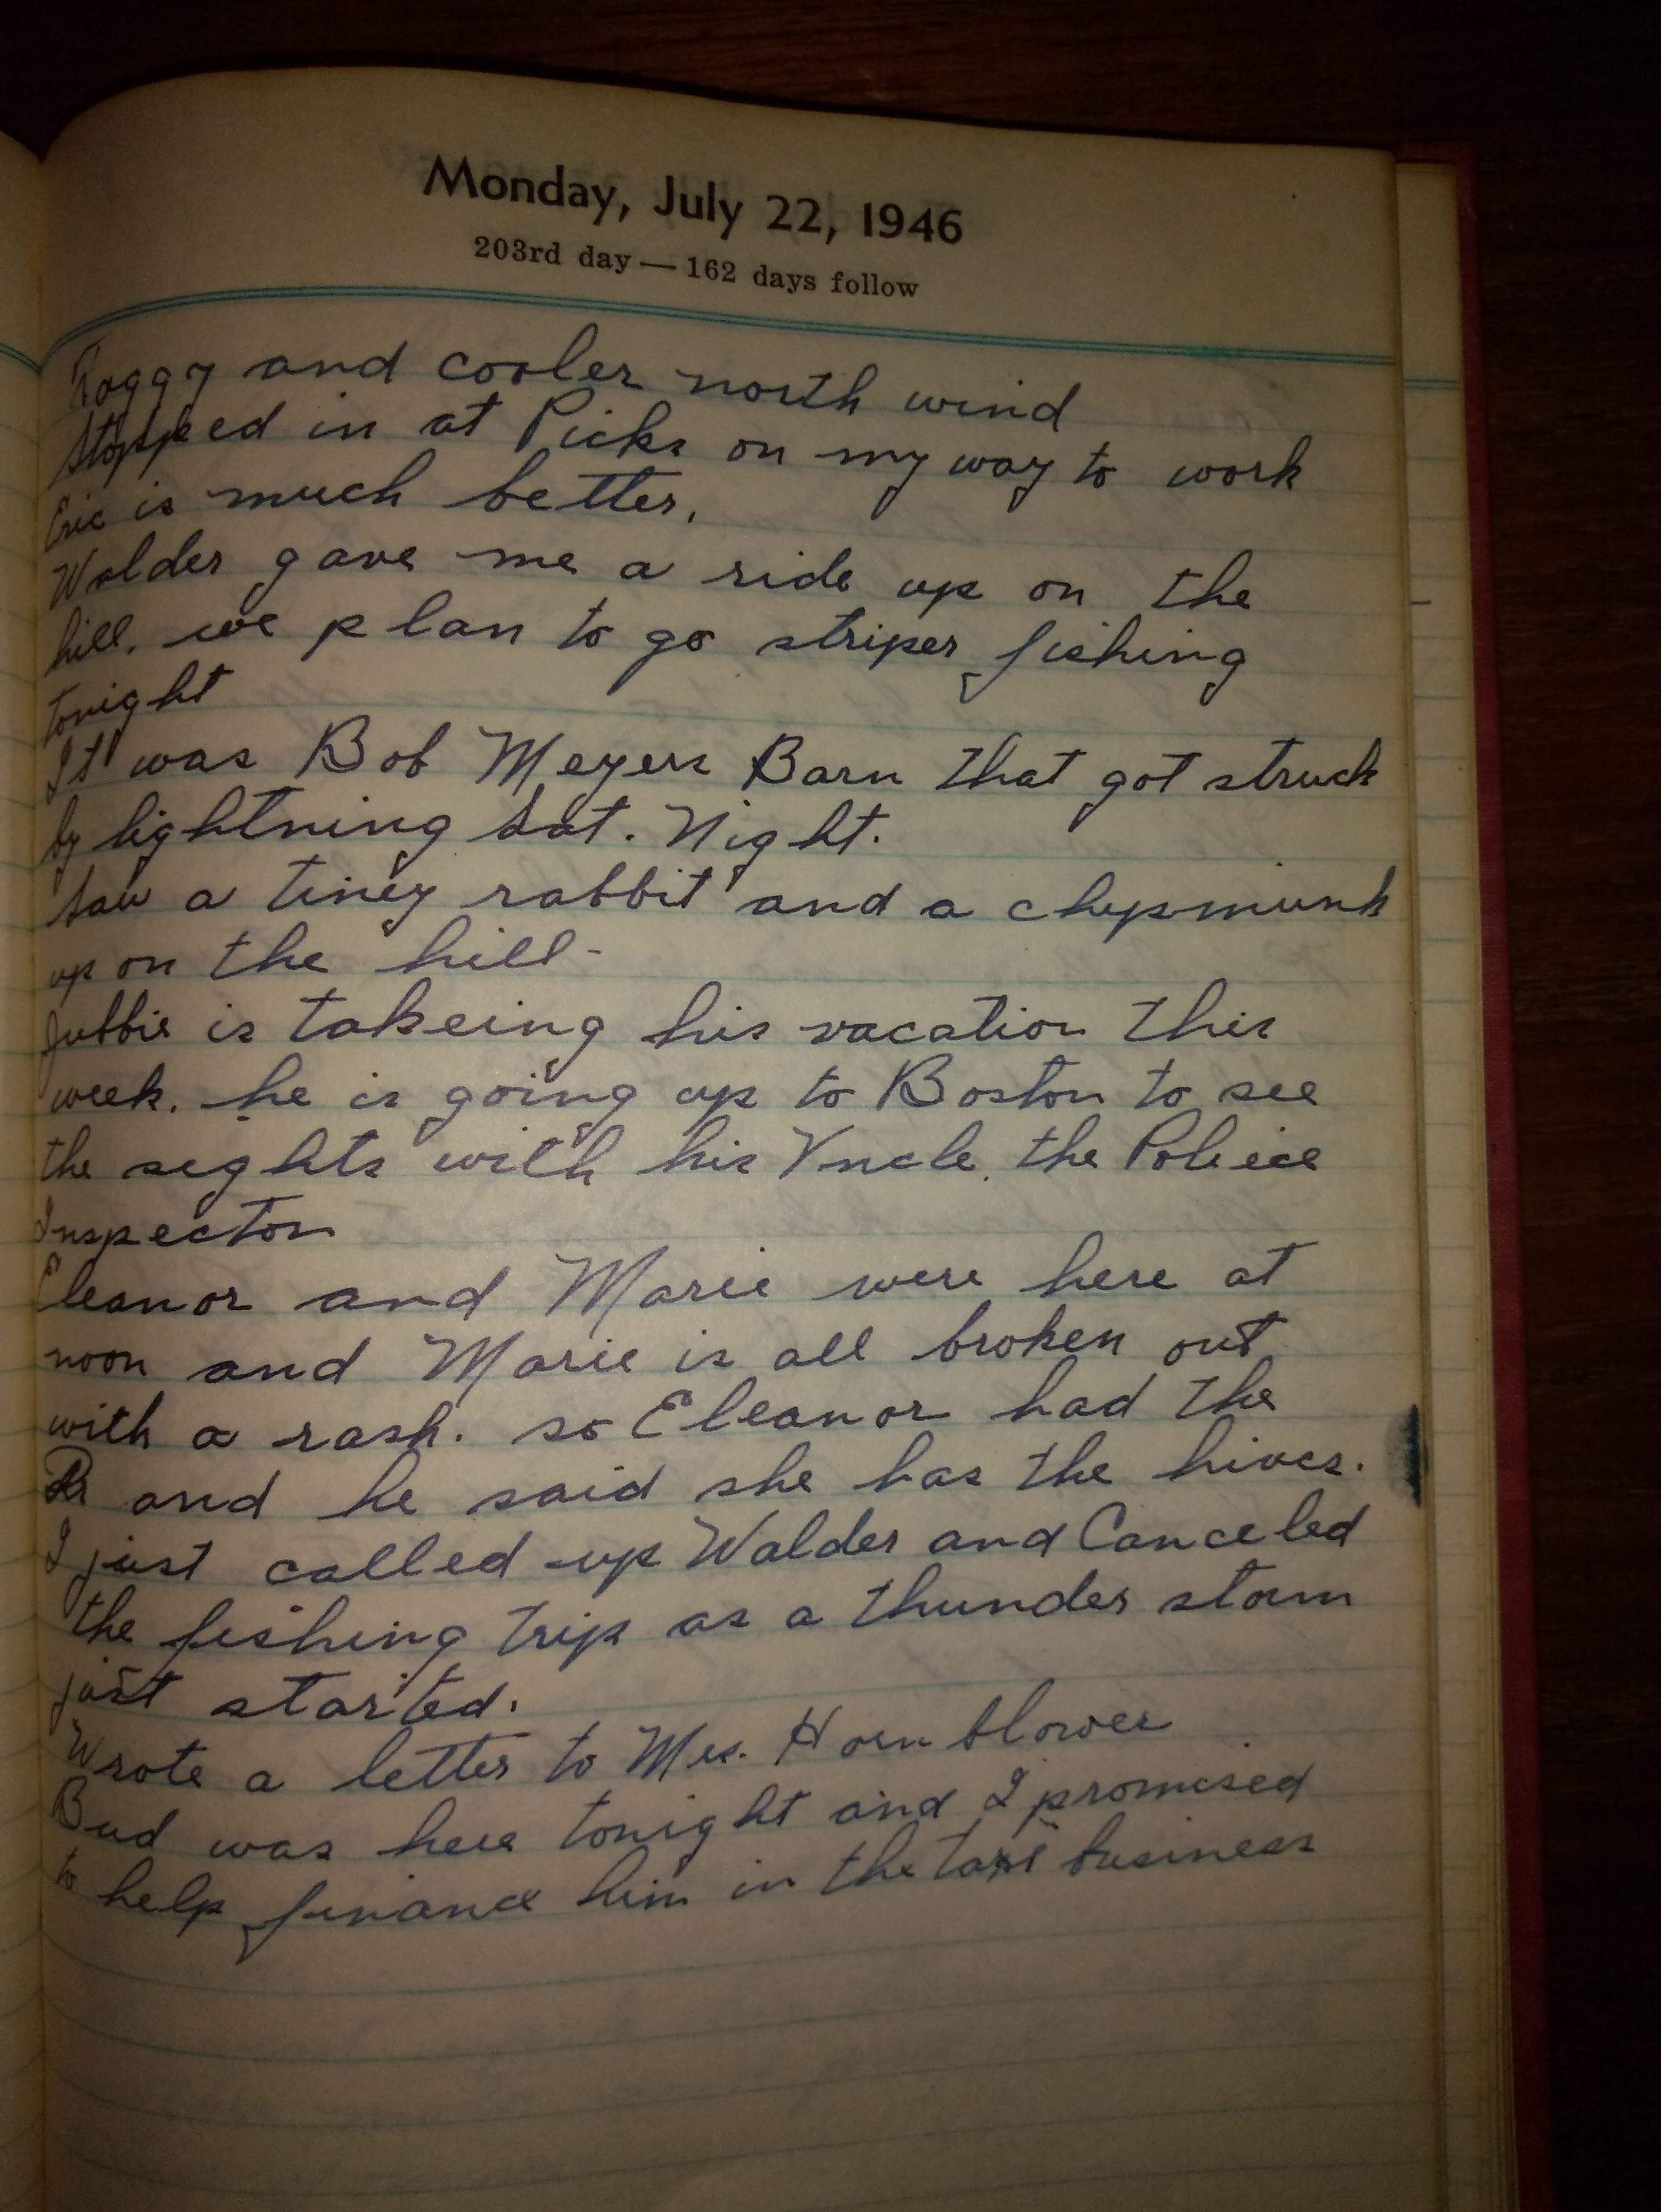 Monday, July 22, 1946
203rd day — 162 days follow
Foggy and cooler north wind
Stopped in at Picks on my way to work
Eric is much better.
Walder gave me a ride up on the
hill. we plan to go striper fishing
tonight
It was Bob Meyers Barn that got struck
by lightning Sat. Night.
Saw a tiney rabbit and a chypmunk
up on the hill-
Jubbie is takeing his vacation this
week. he is going up to Boston to see
the sights with his Uncle. the Poliece
Inspector
Eleanor and Marie were here at
noon and Marie is all broken out
with a rash. so Eleanor had the
Dr and he said she has the hives.
I just called up Walder and Canceled
the fishing trip as a thunder storm
just started.
Wrote a letter to Mrs. Hornblower
Bud was here tonight and I promised
to help finance him in the taxi business